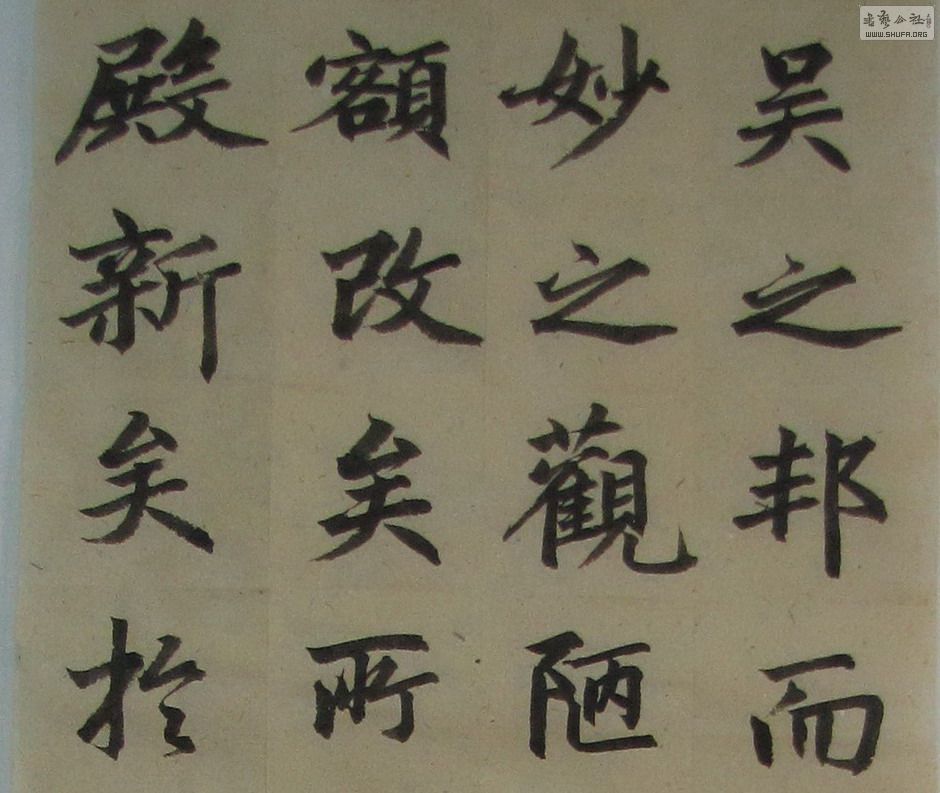 吴之邦而
妙之觀陋
額改矣所
殿新矣於
書藝公社
WWW.SHUFA.ORG